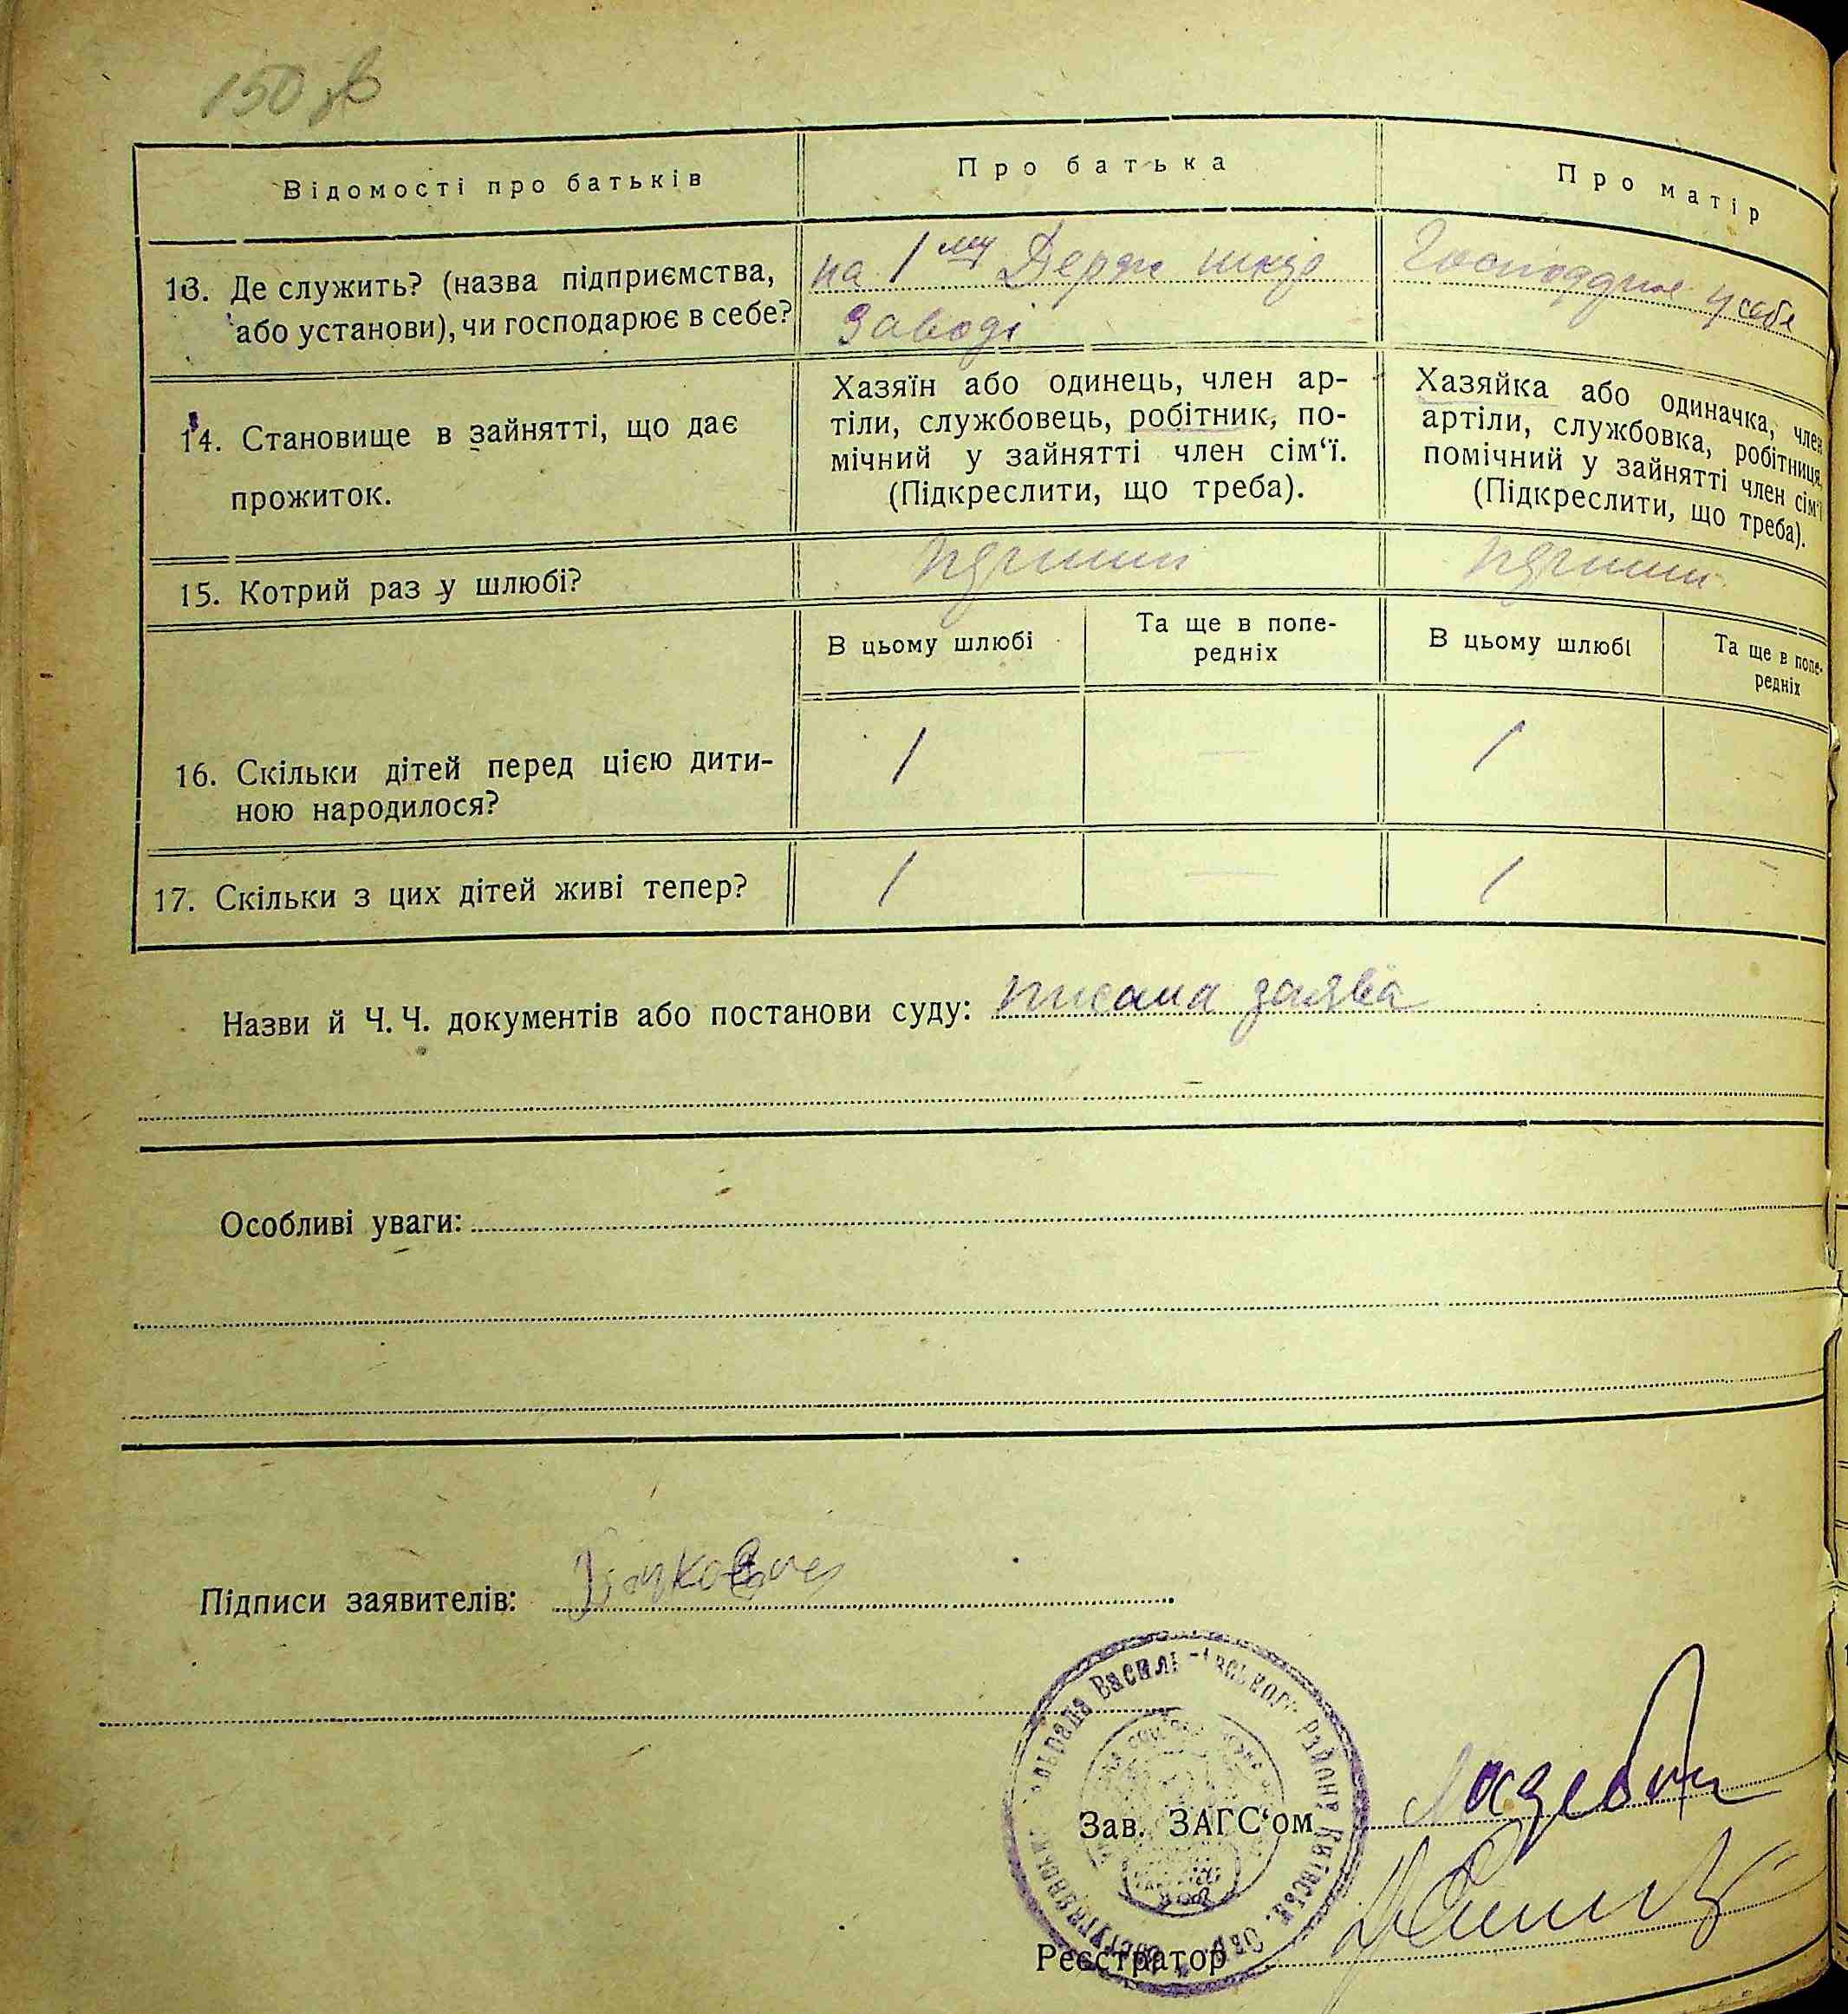 150 зв
Відомості про батьків
Про батька
Про матір
13. Де служить? (назва підприємства,
або установи), чи господарює в себе?
на 1му Держ шкір
заводі
Господарює у себе
14. Становище в зайнятті, що дає
прожиток.
Хазяїн або одинець, член ар-
тіли, службовець, робітник, по-
мічний у зайнятті член сім‘ї.
(Підкреслити, що треба).
Хазяйка або одиначка, член
артіли, службовка, робітниця,
помічний у зайнятті член сім‘ї
(Підкреслити, що треба).
15. Котрий раз у шлюбі?
перший
перший
В цьому шлюбі
Та ще в попе-
редніх
В цьому шлюбі
Та ще в попе-
редніх
16. Скільки дітей перед цією дити-
ною народилося?
1 — 1 -
17. Скільки з цих дітей живі тепер?
1 — 1 -
Назви й Ч. Ч. документів або постанови суду: писана заява
Особливі уваги:
Підписи заявителів:
Васильківського району Київськ.
Зав. ЗАГС‘ом
Реєстратор